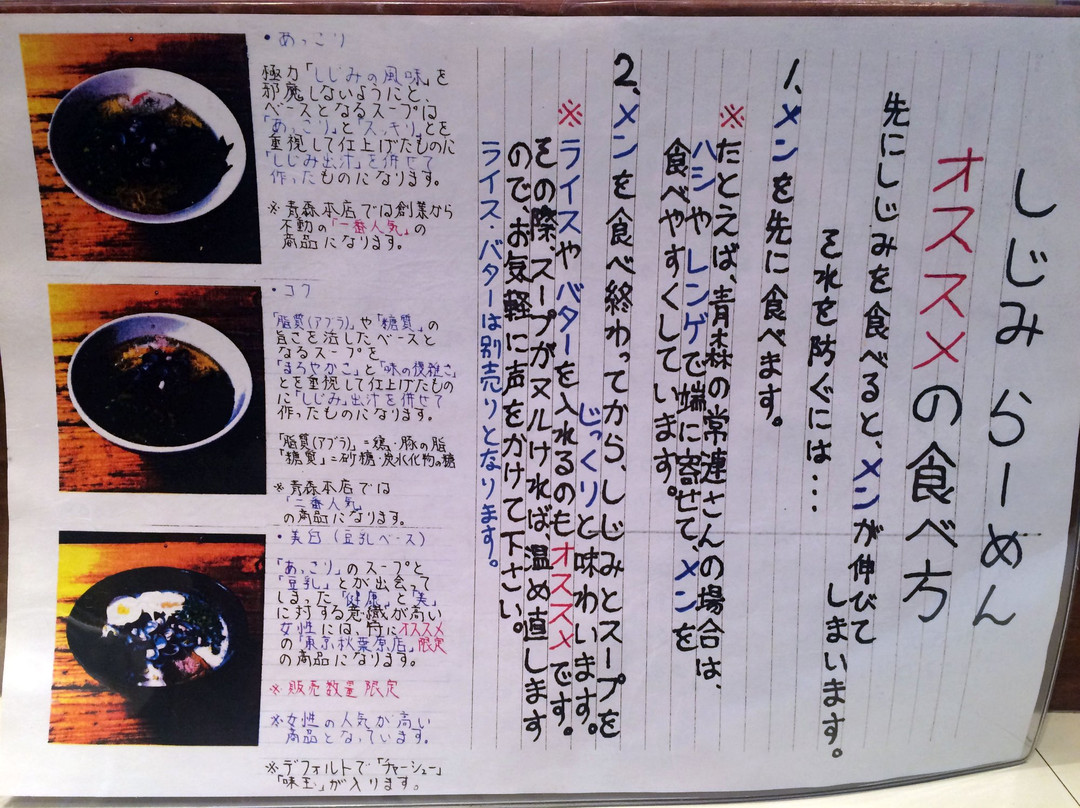 しじみらーめん
オススメの食べ方
先にしじみを食べると、メンが伸びて
しまいます。
それを防ぐには…
1、メンを先に食べます。
※たとえば、青森の常連さんの場合は、
ハシやレンゲで端に寄せて、メンを
食べやすくしています。
2、メンを食べ終わってから、しじみとスープを
じっくりと味わいます。
※ライスやバターを入れるのもオススメです。
その際、スープがヌルければ、温め直します
ので、お気軽に声をかけて下さい。
ライス・バターは別売りとなります。
・あっこり
極力「しじみの風味」を
邪魔しないようにと、
ベースとなるスープは
「あっこり」と「スッキリ」とを
重視して仕上げたものに
「しじみ出汁」を併せて
作ったものになります。
※青森本店では創業から
不動の「一番人気」の
商品になります。
・コク
「脂質(アブラ)」や「糖質」の
旨さを活したベースと
なるスープを
「まろやかこ」と「味の複雑こ」
とを重視して仕上げたもの
に「しじみ」出汁を併せて
作ったものになります。
「脂質(アブラ)」=鶏・豚の脂
「糖質」=砂糖・炭水化物の糖
※青森本店では
「二番人気」
の商品になります。
・美白(豆乳ベース)
「あっこり」のスープと
「豆乳」とが出会って
しまった「健康」と「美」
に対する意識が高い
女性には、特にオススメ
の「東京秋葉原店」限定
の商品になります。
※販売数量限定
※女性の人気が高い
商品となっています。
※デフォルトで「チャーシュー」
「味玉」が入ります。